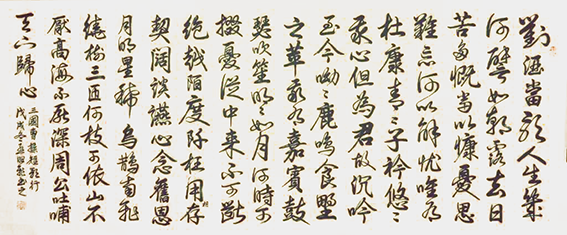 對酒當歌人生幾
何譬如朝露去日
苦多慨當以慷憂思
難忘何以解憂唯有
杜康青々子衿悠々
我心但為君故沉吟
至今呦々鹿鳴食野
之苹我有嘉賓鼓
瑟吹笙明々如月何時可
掇憂從中来不可斷
絕越陌度阡枉用存
契闊談讌心念舊恩
月明星稀烏鵲南飛
繞樹三匝何枝可依山不
厭高海不厭深周公吐哺
天下歸心
三國曹操短歌行
戊戌冬